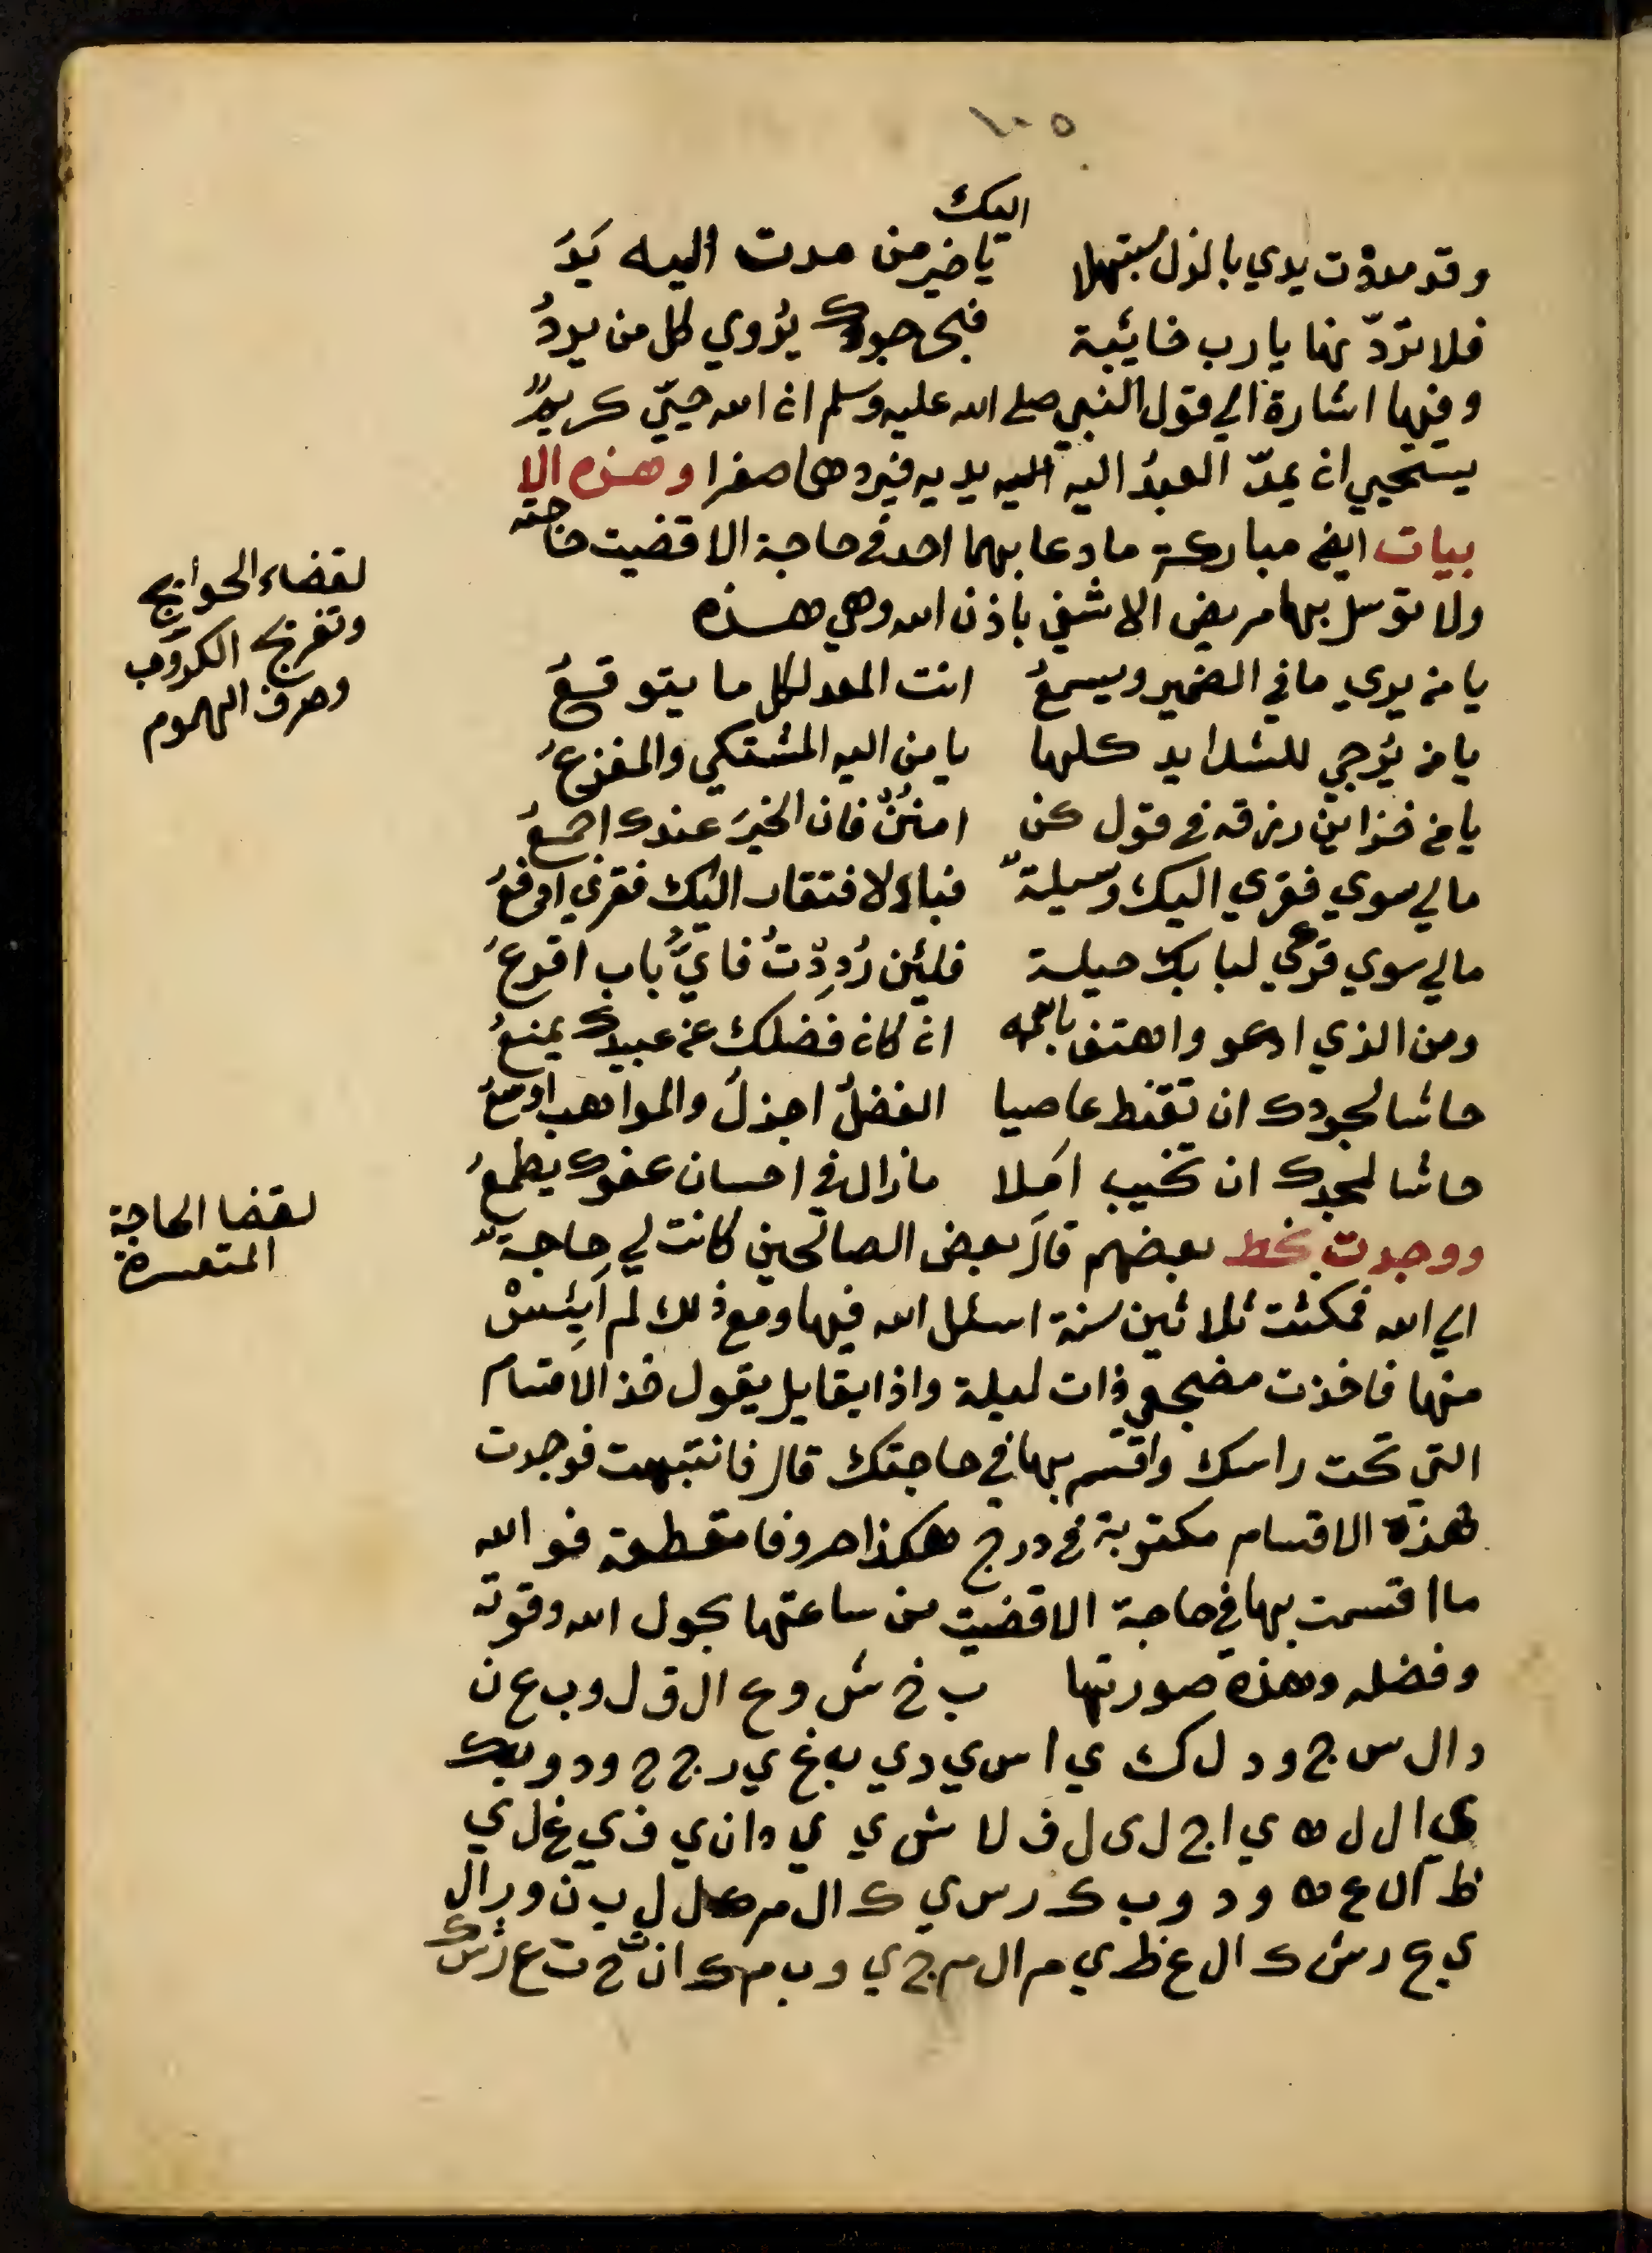 ١٠٥
اليك
وقد مددت يدي بالذل مبتهلا يا خير من مدت اليه يَدَ
فلا تردّنها يا رب خائبة فبحر جودك يُروي كل من يردُ
وفيها اشارة الي قول النبي صلي الله عليه وسلم ان الله حييّ كريمٌ
يستحيي ان يمدّ العبدُ اليه اليه يديه فيردهما صفرا وهذه الا
بيات ايض مباركة ما دعا بهما احد في حاجة الا قضيت حاجته
ولا توسل بها مريض الا شفي باذن الله وهي هذه
لقضاء الحوايج
وتفريج الكروب
وصرف الهموم
يا من يري ما في الضمير ويسمعُ انت المعد لكل ما يتوقعُ
يا من يُرجي للشدايد كلها يا من اليه المشتكي والمفزعُ
يا من خزاين رزقه في قول كن امننْ فان الخيرَ عندك اجمعُ
مالي سوي فقري اليك وسيلةٌ فباالافتقار اليك فقري ادفعُ
مالي سوي قرعي لبابك حيلة فلئن رُدِدْتُ فايُّ باب اقرعُ
ومن الذي ادعو واهتف باسمه ان كان فضلك عن عبيدك يمنعُ
حاشا لجودك ان تقنط عاصيا الفضلُ اجزلُ والمواهب اوسعُ
حاشا لمجدك ان تخيب امِلا مازال في احسان عفوك يطمعُ
لقضا الحاجة
المتعسرة
ووجدت بخط بعضهم قال بعض الصالحين كانت لي حاجةٌ
الي الله فمكثت ثلاثين سنة اسئل الله فيها ومع ذلك لم اَيِئسْ
منها فاخذت مضجعي ذات ليلة واذا بقايل يقول خذ الاقسام
التي تحت راسك واقسم بها في حاجتك قال فانتبهت فوجدت
هذه الاقسام مكتوبة في درج هكذا حروفا مقطعة فوالله
ما اقسمت بها في حاجة الا قضيت من ساعتها بحول الله وقوته
وفضله وهذه صورتها ب خ ش و ع ال ق ل و ب ع ن
د ال س ج و د ل ك ي ا س ي د ي ب غ ي ر ج ح و د و ب ك
ي ا ل ل ه ي ا ج ل ي ل ف ل ا ش ي ي د ا ن ي ف ي غ ل ي
ظ ال ع ه و د و ب ك ر س ي ك ال م ك ل ل ب ن و ر ال
ي ع ر ش ك ال ع ظ ي م ال م ج ي و ب م ك ا ن ت ح ت ع ر ش ك